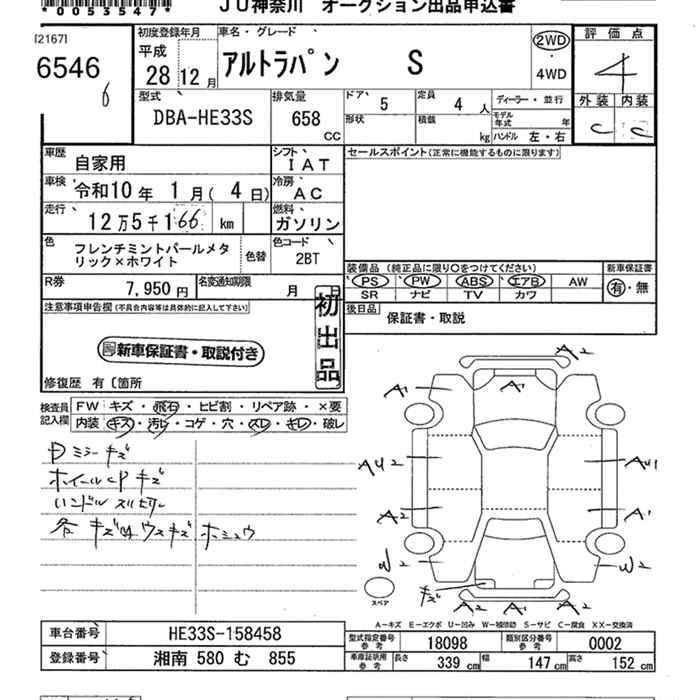 *0053547*
JU神奈川 オークション出品申込書
[2167]
6546
6
初度登録年月
平成
28年12月
車名・グレード
アルトラパン S
2WD
4WD
評価点
4
外装 内装
C C
型式
DBA-HE33S
排気量
658
CC
ドア
5
定員
4人
ディーラー・並行
形状
積載
kg
モデル年式
年
ハンドル 左・右
車歴
自家用
シフト
IAT
セールスポイント(正常に機能するものに限ります)
車検
令和10年 1月(4日)
冷房
AC
走行
12万5千166 km
燃料
ガソリン
色
フレンチミントパールメタリック×ホワイト
色替
色コード
2BT
装備品(純正品に限り○をつけてください)
PS PW ABS エアB AW
SR ナビ TV カワ
新車保証書
有・無
R券
7,950円
名変通知期限
月 日
後日品
保証書・取説
注意事項申告欄(不具合内容等は具体的に記入して下さい)
初出品
新車保証書・取説付き
修復歴 有〔箇所
検査員記入欄
FW キズ・飛石・ヒビ割・リペア跡・×要
内装 キズ・汚レ・コゲ・穴・スレ・キレ・破レ
Dミラーキズ
ホイールCPキズ
ハンドルスレ
各キズ
A2
A1
A1
AU2
AU1
A2
A1
W2
W2
キズ
A2 A1 A2
スペア
A-キズ E-エクボ U-凹み W-補修跡 S-サビ C-腐食 XX-交換済
車台番号
HE33S-158458
登録番号
湘南 580 む 855
型式指定番号
参考
18098
類別区分番号
参考
0002
車庫証明用
参考
長さ
339 cm
幅
147 cm
高さ
152 cm